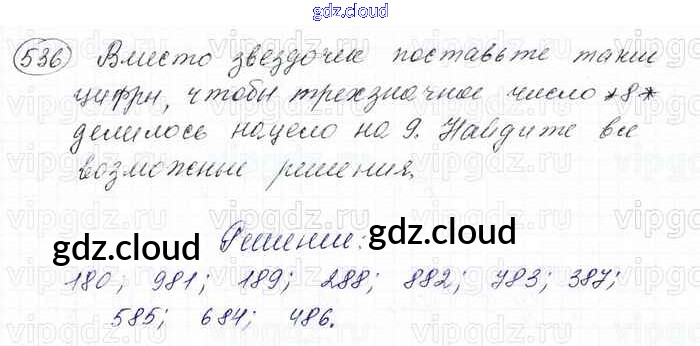 gdz.cloud
536 Вместо звездочек поставьте такие
цифры, чтобы трехзначное число *8*
делилось нацело на 9. Найдите все
возможные решения.
Решение:
gdz.cloud gdz.cloud
180; 981; 189; 288; 882; 783; 387;
585; 684; 486.